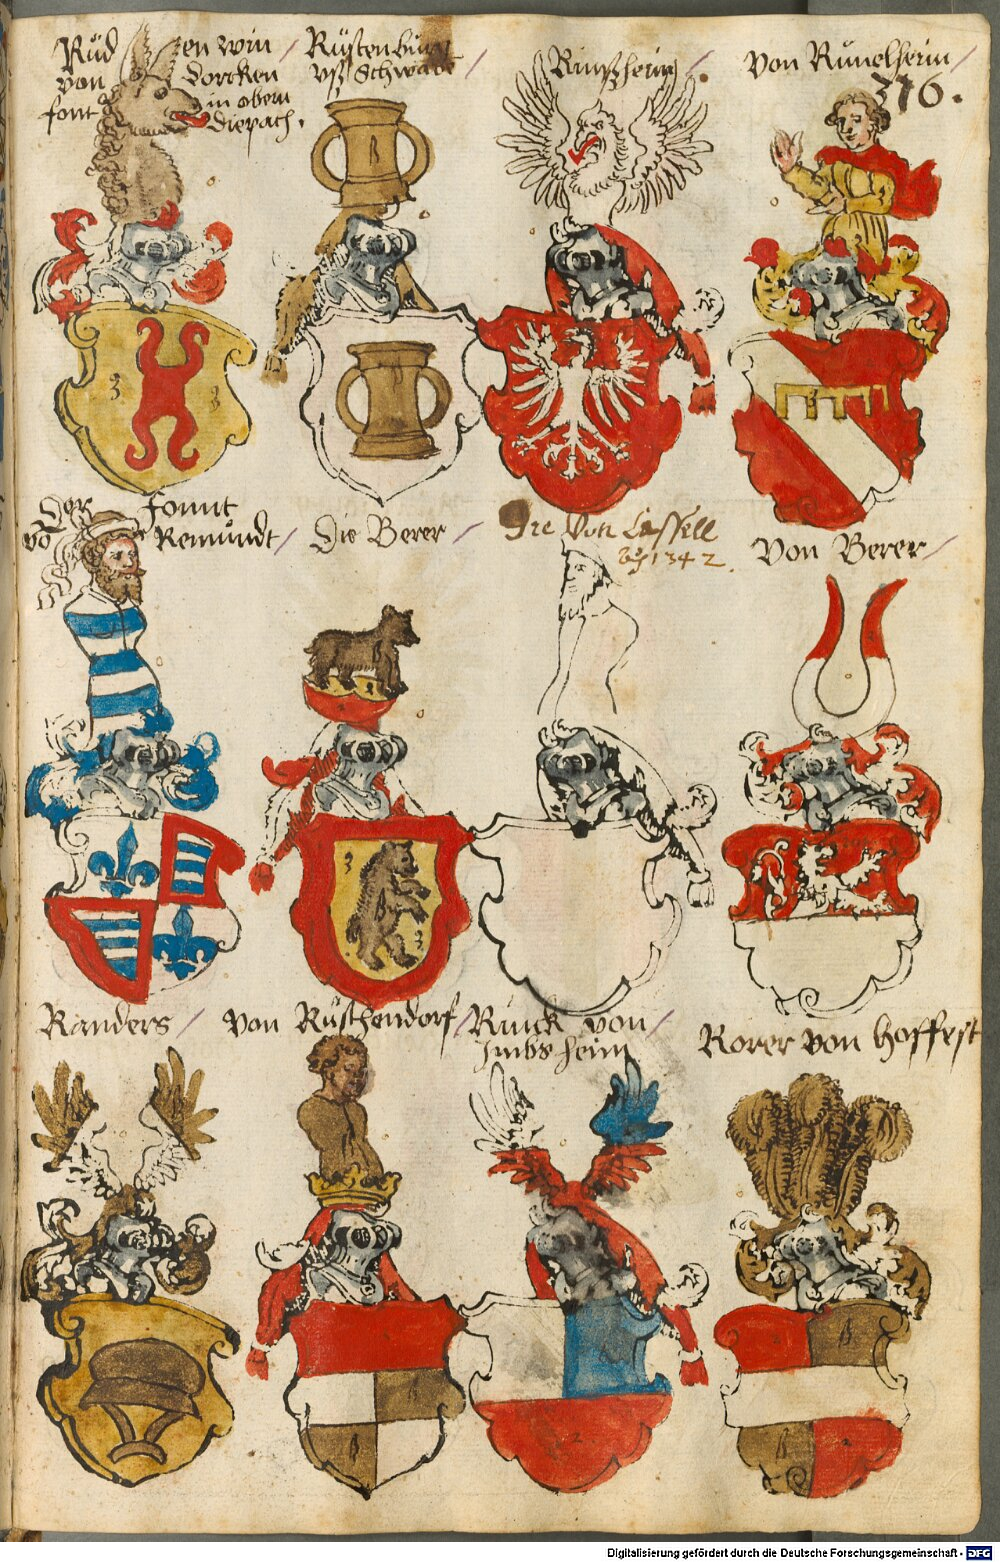 Rüd en von /
von dorcken
font in obern
diepach.
Rüstenbüng
vß Schwabe /
Rinßheim /.
Von Rümelheim /
376.
3 3
ß
ß
Der font
vo Remündt /
Die Berer /
Die Von Cassell
Aō 1342.
Von Berer /
3
3
Randers /
Von Rüschendorf /
Rinck von /
imbsheim
Rorer von Hoffest
ß
ß
2
ß
ß
2
Digitalisierung gefördert durch die Deutsche Forschungsgemeinschaft - DFG